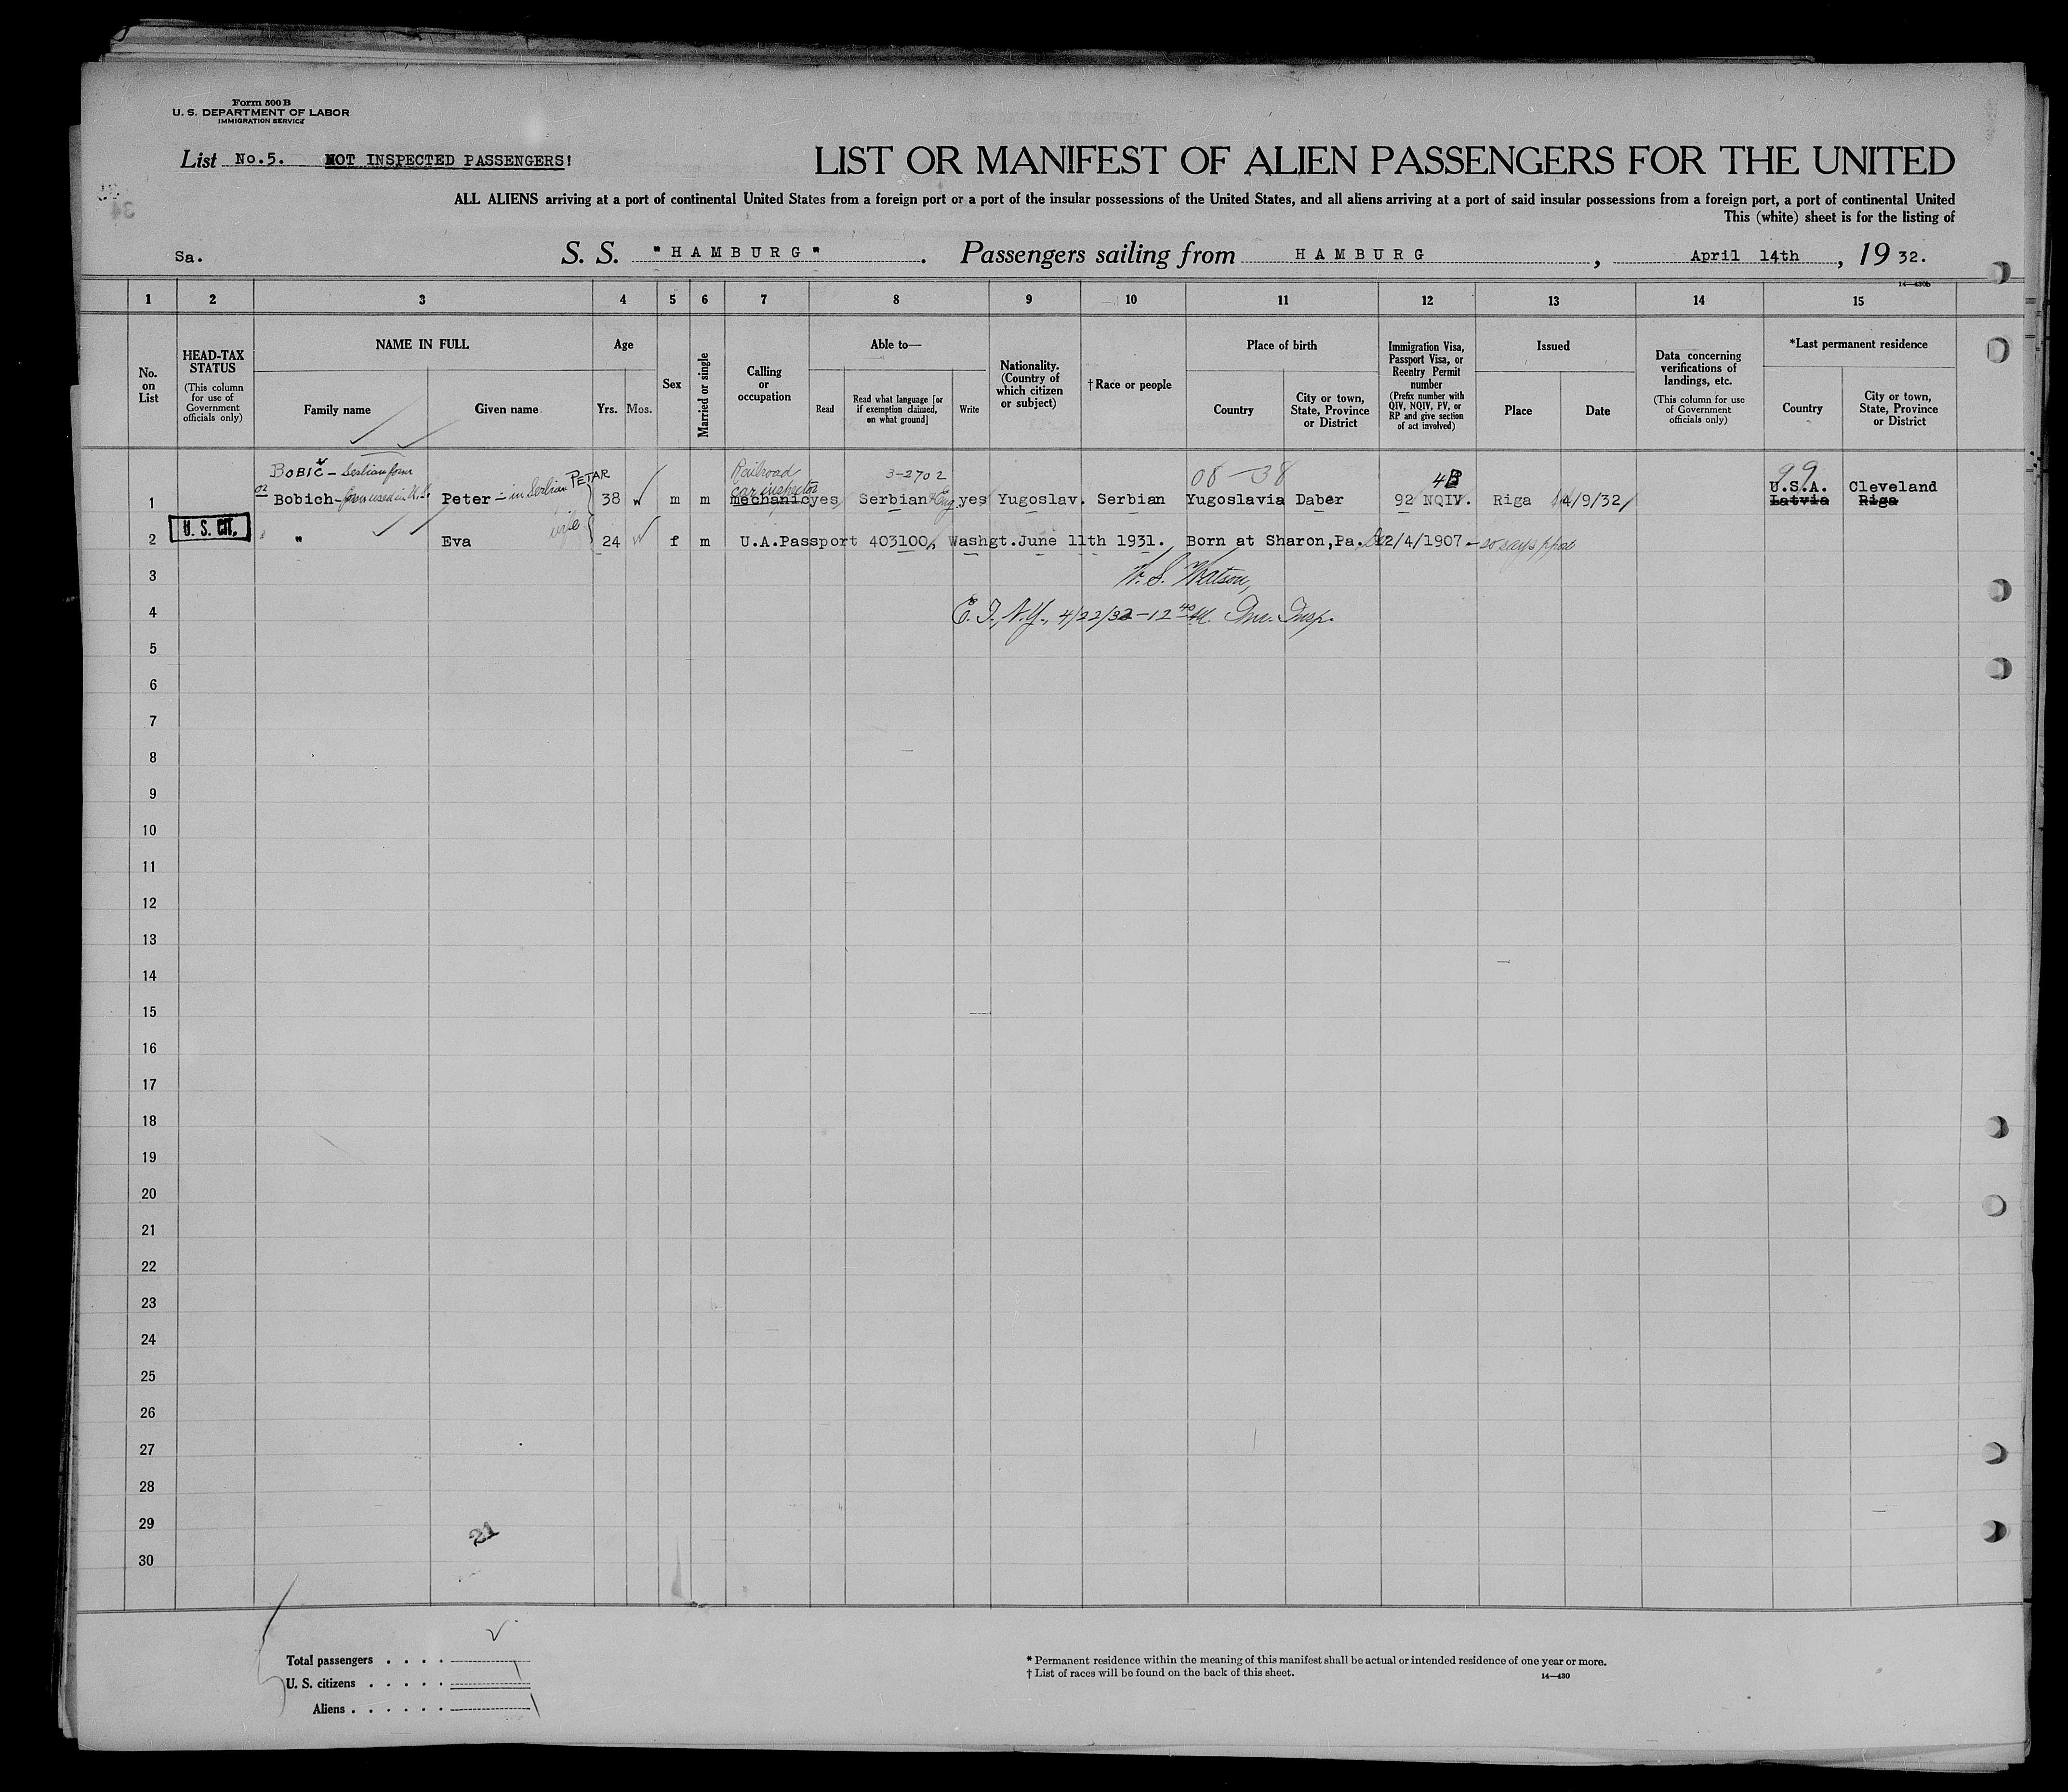 Form 500 B
U. S. DEPARTMENT OF LABOR
IMMIGRATION SERVICE
List No.5. NOT INSPECTED PASSENGERS!
LIST OR MANIFEST OF ALIEN PASSENGERS FOR THE UNITED
ALL ALIENS arriving at a port of continental United States from a foreign port or a port of the insular possessions of the United States, and all aliens arriving at a port of said insular possessions from a foreign port, a port of continental United
This (white) sheet is for the listing of
34
Sa. S. S. "HAMBURG". Passengers sailing from HAMBURG, April 14th, 1932.
14—430b
1 2 3 4 5 6 7 8 9 10 11 12 13 14 15
No. on List
HEAD-TAX STATUS
(This column for use of Government officials only)
NAME IN FULL
Family name Given name
Age
Yrs. Mos.
Sex
Married or single
Calling or occupation
Able to—
Read Read what language [or if exemption claimed, on what ground] Write
Nationality. (Country of which citizen or subject)
† Race or people
Place of birth
Country City or town, State, Province or District
Immigration Visa, Passport Visa, or Reentry Permit number
(Prefix number with QIV, NQIV, PV, or RP and give section of act involved)
Issued
Place Date
Data concerning verifications of landings, etc.
(This column for use of Government officials only)
*Last permanent residence
Country City or town, State, Province or District
BOBIČ - Serbian form Railroad 3-2702 08-38 4B 99
or PETAR car inspector U.S.A. Cleveland
1 Bobich - form used in U.S. Peter - in Serbian 38 m m mechanic yes Serbian & Eng. yes Yugoslav. Serbian Yugoslavia Daber 92 NQIV. Riga 4/9/32 Latvia Riga
U. S. CIT.
2 " Eva wife 24 f m U.A.Passport 403100, Washgt.June 11th 1931. Born at Sharon,Pa. 12/4/1907 - so says ppt
3 W. S. Watson,
4 E. I., N.Y., 4/22/32 - 12 40 M. Imm. Insp.
5
6
7
8
9
10
11
12
13
14
15
16
17
18
19
20
21
22
23
24
25
26
27
28
29
30
21
Total passengers . . . .
U. S. citizens . . . . .
Aliens . . . . . .
* Permanent residence within the meaning of this manifest shall be actual or intended residence of one year or more.
† List of races will be found on the back of this sheet.
14—430